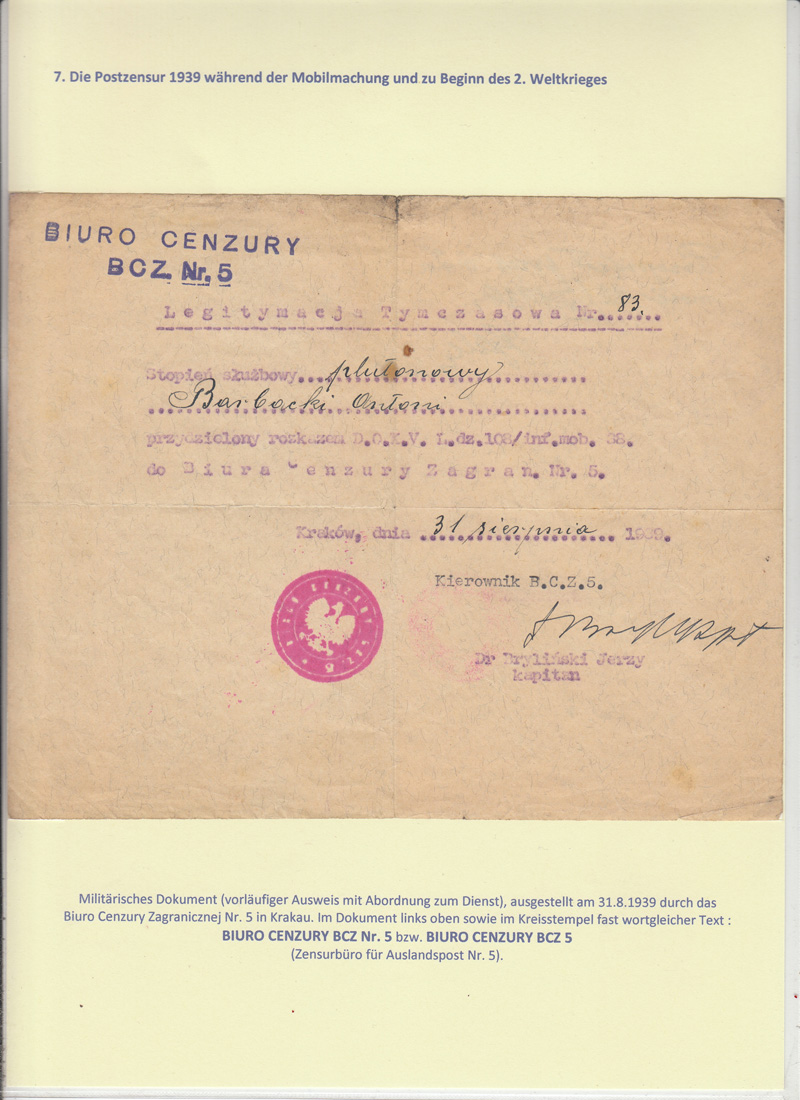 7. Die Postzensur 1939 während der Mobilmachung und zu Beginn des 2. Weltkrieges
BIURO CENZURY
BCZ. Nr. 5
Legitymacja Tymczasowa Nr...83.....
Stopień służbowy...plutonowy............
...Barbacki Antoni..................
przydzielony rozkazem D.O.K.V. L.dz.108/inf.mob. 38.
do Biura Cenzury Zagran. Nr. 5.
Kraków, dnia ...31 sierpnia... 1939.
Kierownik B.C.Z.5.
BIURO CENZURY BCZ. 5
Dr Bryliński Jerzy
kapitan
Militärisches Dokument (vorläufiger Ausweis mit Abordnung zum Dienst), ausgestellt am 31.8.1939 durch das
Biuro Cenzury Zagranicznej Nr. 5 in Krakau. Im Dokument links oben sowie im Kreisstempel fast wortgleicher Text :
BIURO CENZURY BCZ Nr. 5 bzw. BIURO CENZURY BCZ 5
(Zensurbüro für Auslandspost Nr. 5).